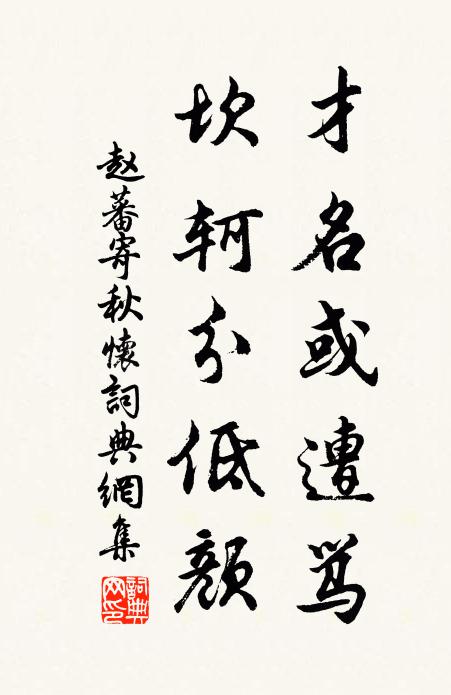 才名或遭骂
坎轲分低颜
赵蕃寄秋懷詞典網集
詞典网印